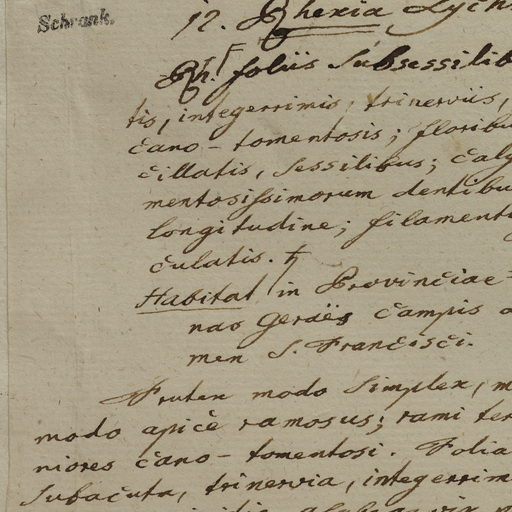 Schrank.
12. Rhexia Lychn
Rh. foliis subsessilib
tis, integerrimis, trinerviis,
cano-tomentosis; floribu
cillatis, sessilibus; caly
mentosissimorum dentibu
longitudine; filamenti
culatis. ♄
Habitat in Provinciae
nas Geraës campis a
men S. Francisci.
Frutex modo simplex, m
modo apice ramosus; rami ter
niores cano-tomentosi. Folia
subacuta, trinervia, integerrim